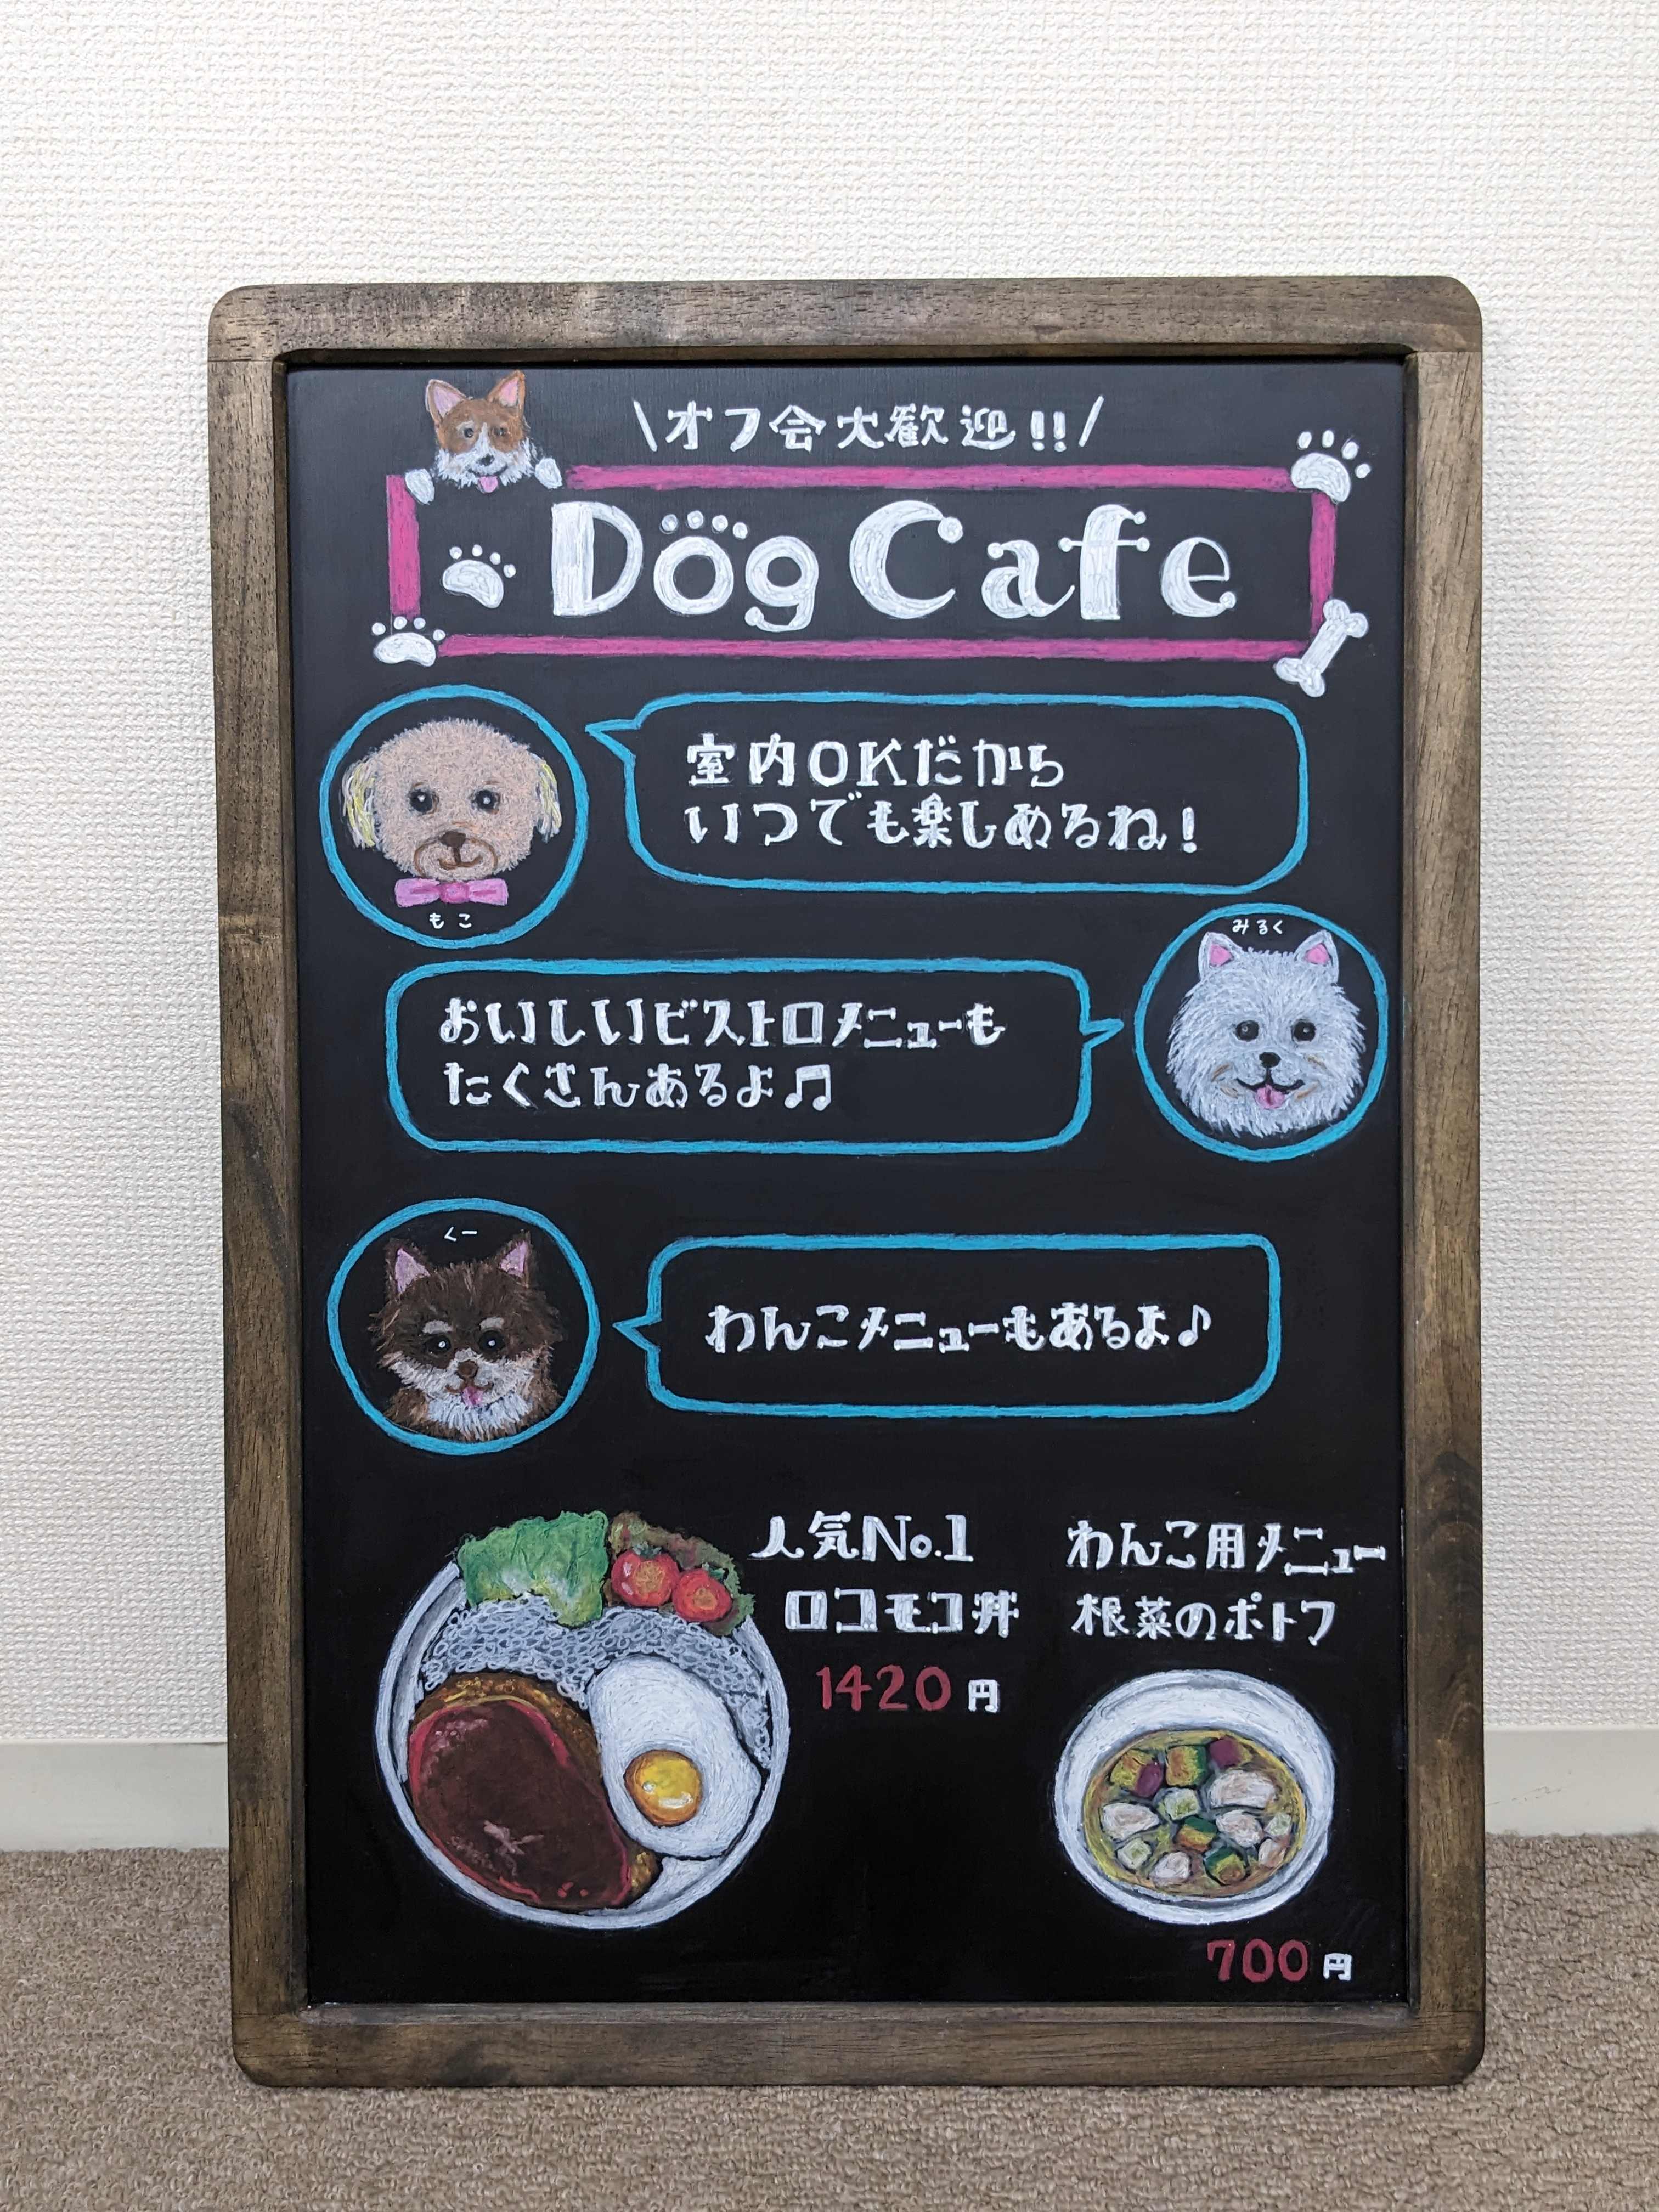 \オフ会大歓迎!!/
Dog Cafe
室内OKだから
いつでも楽しめるね!
もこ
みるく
おいしいビストロメニューも
たくさんあるよ♫
くー
わんこメニューもあるよ♪
人気No.1
ロコモコ丼
1420円
わんこ用メニュー
根菜のポトフ
700円